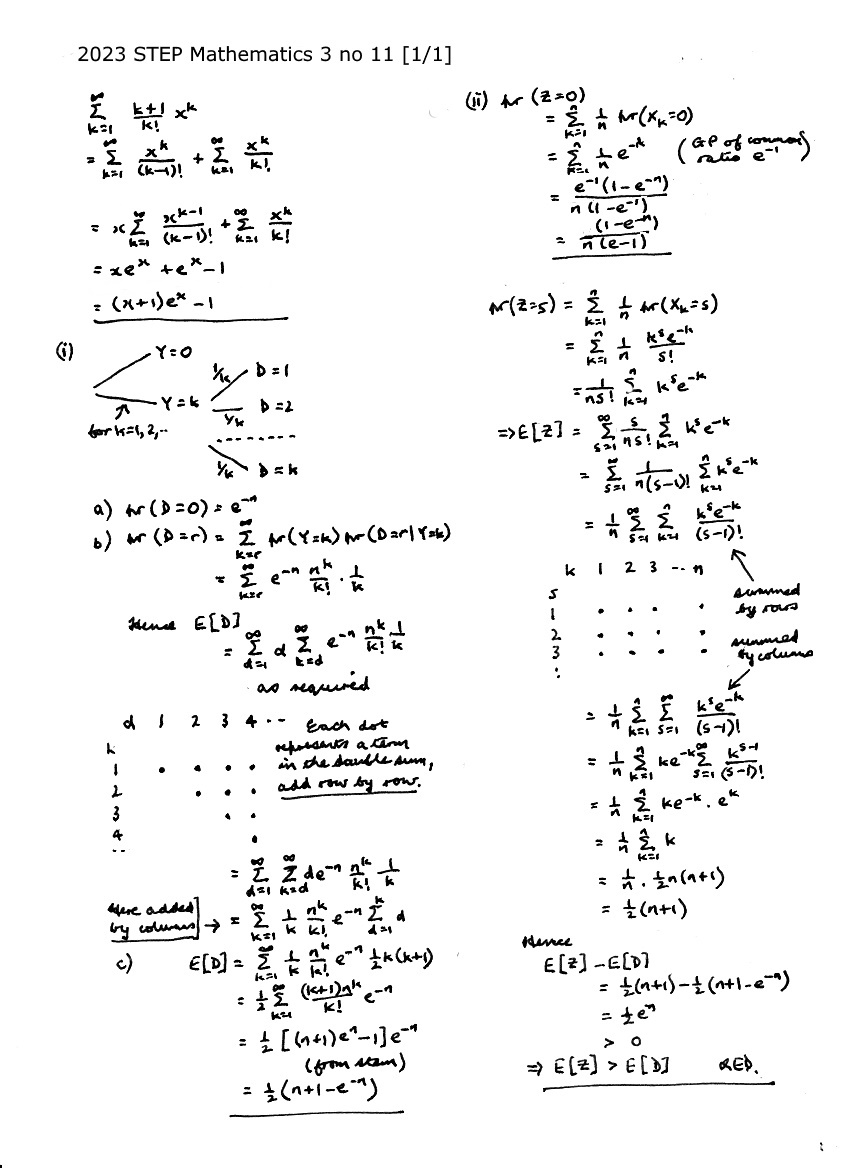 2023 STEP Mathematics 3 no 11 [1/1]
∞Σk=1 (k+1)/k! x^k
= ∞Σk=1 x^k/(k-1)! + ∞Σk=1 x^k/k!
= x ∞Σk=1 x^(k-1)/(k-1)! + ∞Σk=1 x^k/k!
= xe^x + e^x - 1
= (x+1)e^x - 1
(i)
Y=0
1/k D=1
Y=k 1/k D=2
for k=1,2,..
1/k D=k
a) pr(D=0) = e^-n
b) pr(D=r) = ∞Σk=r pr(Y=k) pr(D=r|Y=k)
= ∞Σk=r e^-n n^k/k! . 1/k
Hence E[D]
= ∞Σd=1 d ∞Σk=d e^-n n^k/k! 1/k
as required
d 1 2 3 4 ..
k
1
2
3
4
..
Each dot
represents a term
in the double sum,
add row by row.
= ∞Σd=1 ∞Σk=d de^-n n^k/k! 1/k
Here added
by columns → = ∞Σk=1 1/k n^k/k! e^-n kΣd=1 d
c) E[D] = ∞Σk=1 1/k n^k/k! e^-n ½k(k+1)
= ½ ∞Σk=1 (k+1)n^k/k! e^-n
= ½ [(n+1)e^n - 1] e^-n
(from stem)
= ½(n+1-e^-n)
(ii) pr(Z=0)
= nΣk=1 1/n pr(X_k=0)
= nΣk=1 1/n e^-k (GP of common ratio e^-1)
= e^-1(1-e^-n)/n(1-e^-1)
= (1-e^-n)/n(e-1)
pr(Z=s) = nΣk=1 1/n pr(X_k=s)
= nΣk=1 1/n k^s e^-k/s!
= 1/ns! nΣk=1 k^s e^-k
⇒ E[Z] = ∞Σs=1 s/ns! nΣk=1 k^s e^-k
= ∞Σs=1 1/n(s-1)! nΣk=1 k^s e^-k
= 1/n ∞Σs=1 nΣk=1 k^s e^-k/(s-1)!
k 1 2 3 -- n
s
1
2
3
:
summed
by rows
summed
by columns
= 1/n nΣk=1 ∞Σs=1 k^s e^-k/(s-1)!
= 1/n nΣk=1 ke^-k ∞Σs=1 k^(s-1)/(s-1)!
= 1/n nΣk=1 ke^-k . e^k
= 1/n nΣk=1 k
= 1/n . ½n(n+1)
= ½(n+1)
Hence
E[Z] - E[D]
= ½(n+1) - ½(n+1-e^-n)
= ½e^n
> 0
⇒ E[Z] > E[D] QED.